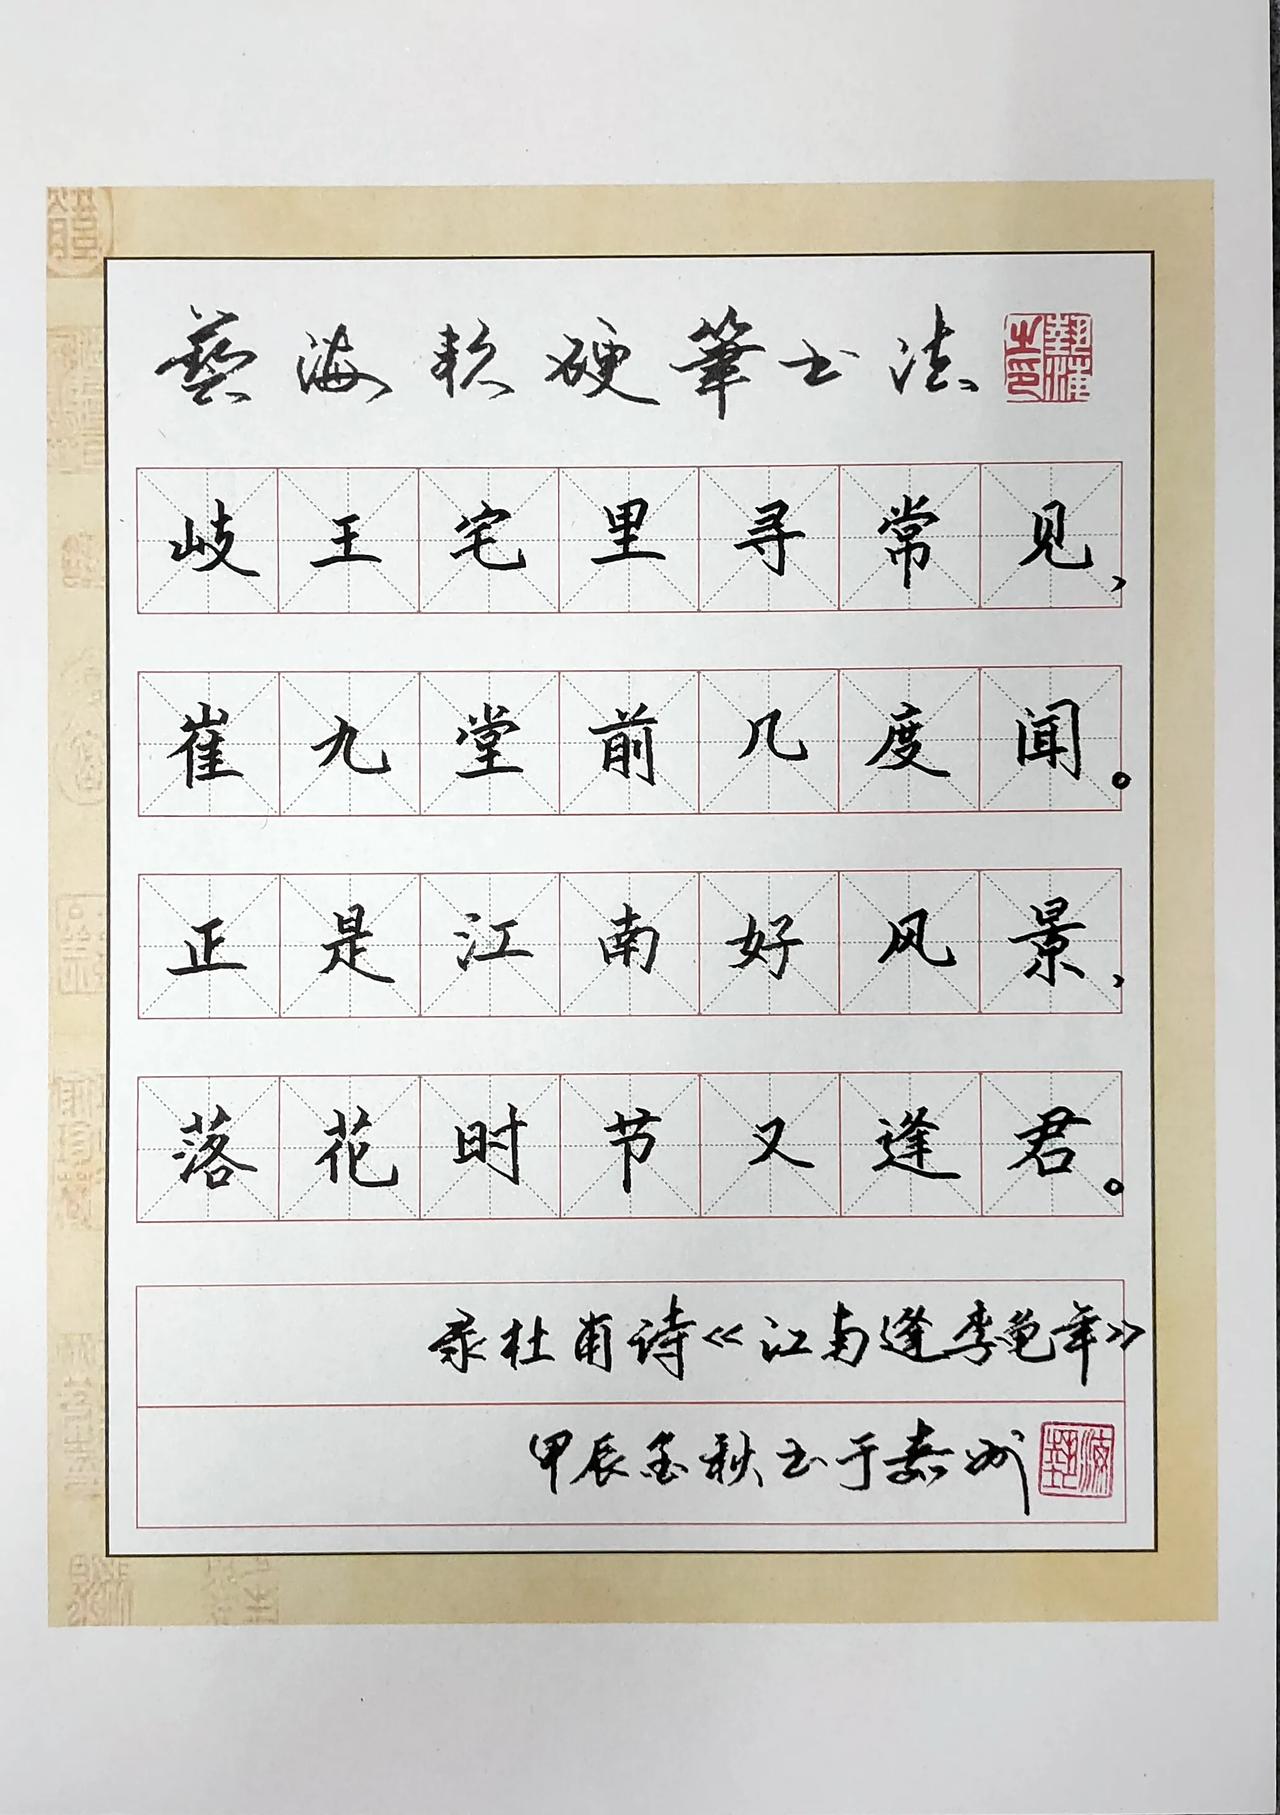 藝海软硬筆书法
岐王宅里寻常见，
崔九堂前几度闻。
正是江南好风景，
落花时节又逢君。
录杜甫诗《江南逢李龟年》
甲辰金秋书于嘉州